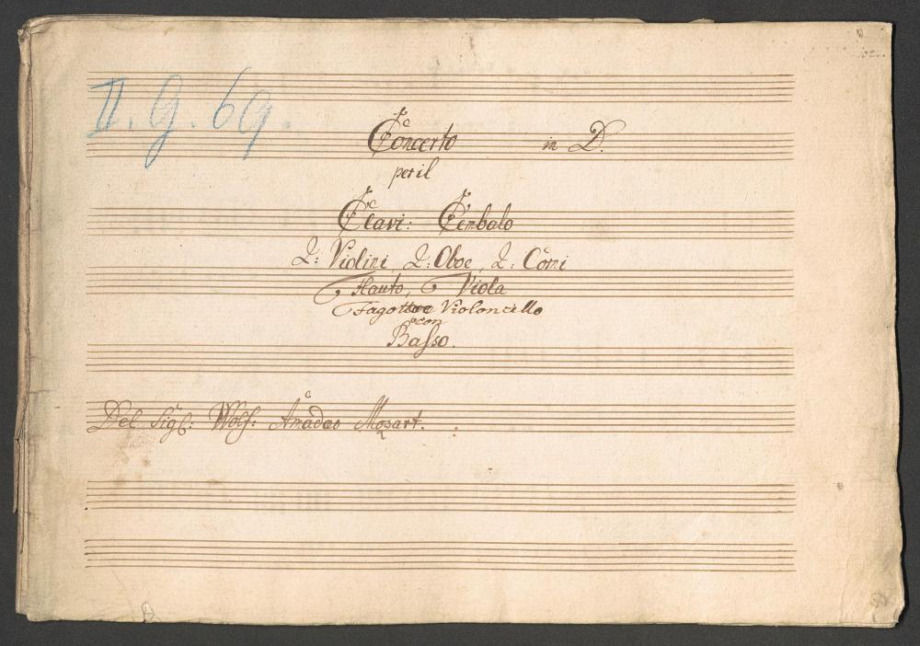 II. G. 69.
Concerto in D.
per il
Clavi: Cembalo
2: Violini, 2: Oboe, 2: Corni
Flauto, Viola
Fagotto e Violoncello
con
Basso.
Del Sigl: Wolf: Amadeo Mozart.